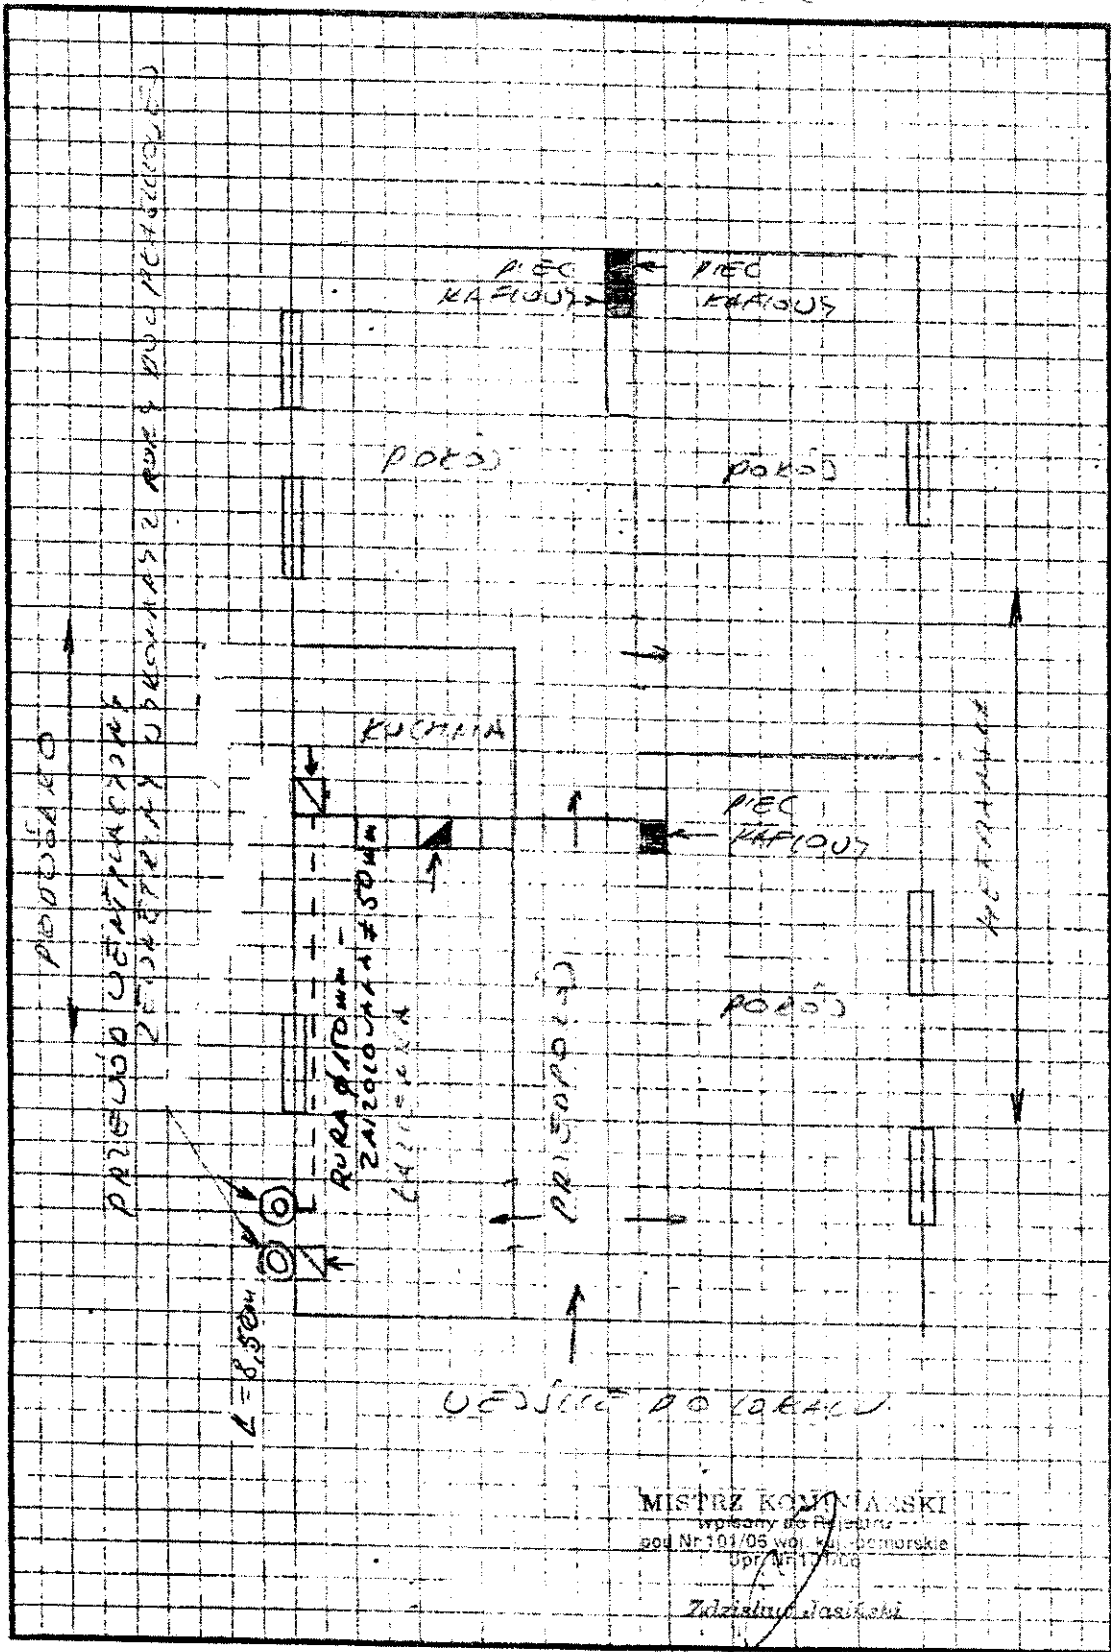 PODWÓRKO
PRZEWÓD WENTYLACYJNY
ZEWNĘTRZNY WYKONANY Z RURY DWUPŁASZCZOWEJ
PIEC
KAFLOWY
PIEC
KAFLOWY
POKÓJ
POKÓJ
KUCHNIA
PIEC
KAFLOWY
RURA Ø 150 mm -
ZAIZOLOWANA ≠ 50 mm
ŁAZIENKA
PRZEDPOKÓJ
POKÓJ
L = 8,50m
WEJŚCIE DO LOKALU
MISTRZ KOMINIARSKI
wpisany do Rejestru
pod Nr 101/06 woj. kuj.-pomorskie
Upr. Nr
Zdzisław Jasiński